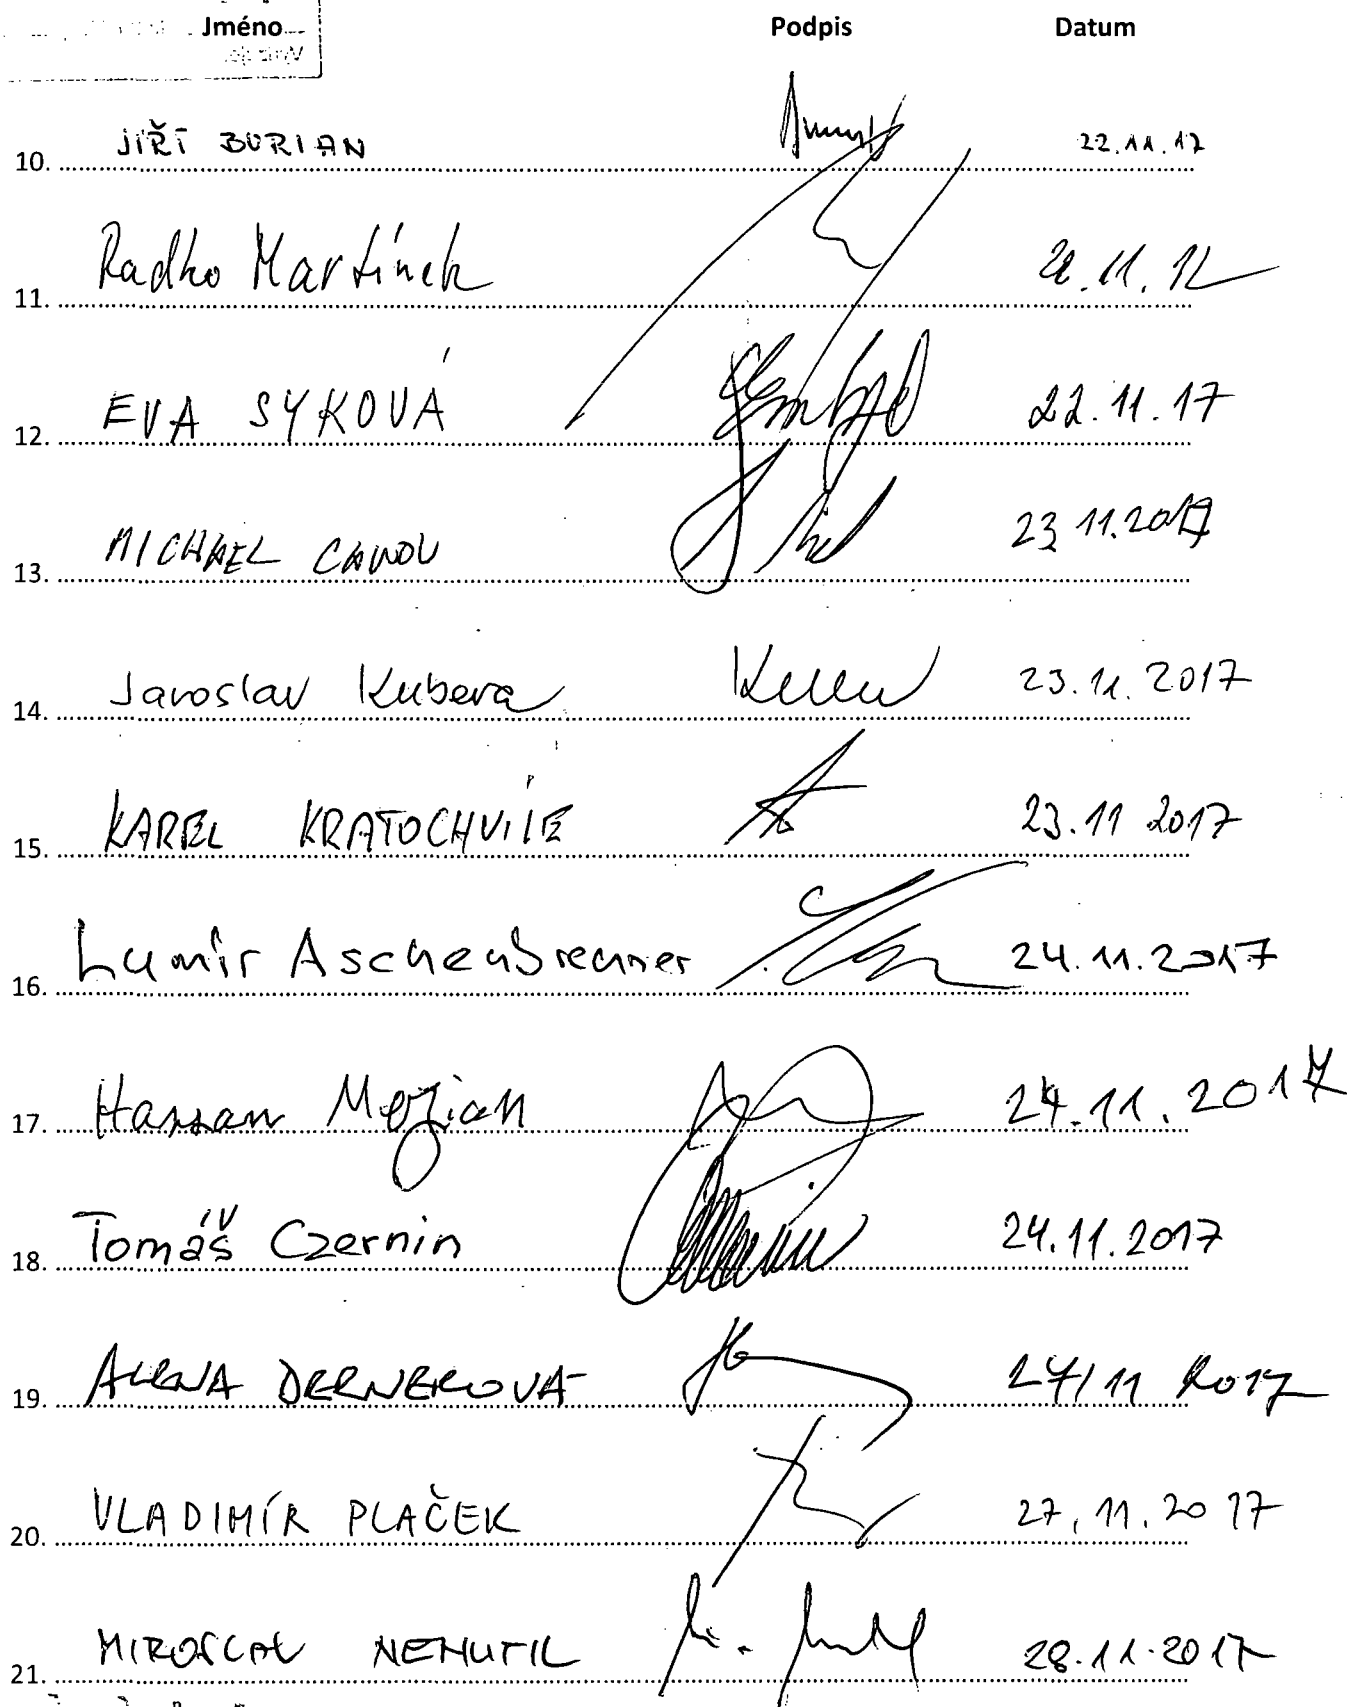 Jméno Podpis Datum
10. JIŘÍ BURIAN 22.11.17
11. Radko Martínek
12. EVA SYKOVÁ 22.11.17
13. MICHAEL CANOV 23 11.2017
14. Jaroslav Kubera 23.11.2017
15. KAREL KRATOCHVÍLE 23.11 2017
16. Lumír Aschenbrenner 24.11.2017
17. Hassan Mezian 24.11.2017
18. Tomáš Czernin 24.11.2017
19. ALENA DERNEROVÁ 27/11 2017
20. VLADIMÍR PLAČEK 27.11.2017
21. MIROSLAV NENUTIL 28.11.2017